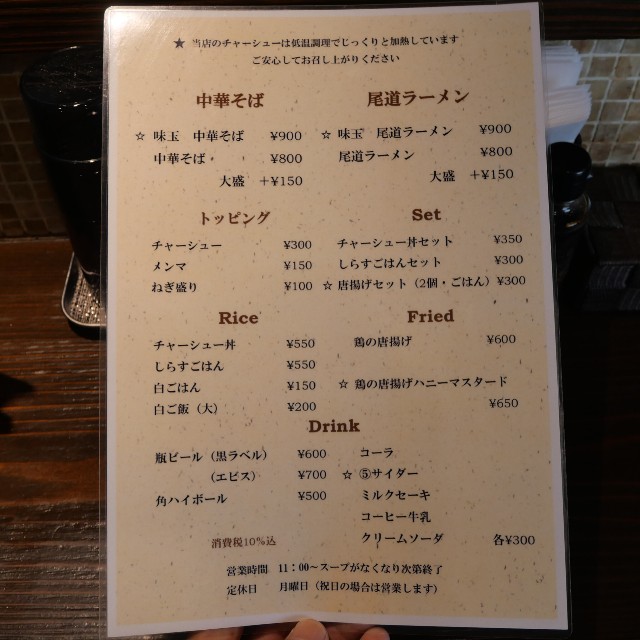 ★ 当店のチャーシューは低温調理でじっくりと加熱しています
ご安心してお召し上がりください
中華そば
☆ 味玉 中華そば ¥900
中華そば ¥800
大盛 +¥150
尾道ラーメン
☆ 味玉 尾道ラーメン ¥900
尾道ラーメン ¥800
大盛 +¥150
トッピング
チャーシュー ¥300
メンマ ¥150
ねぎ盛り ¥100
Set
チャーシュー丼セット ¥350
しらすごはんセット ¥300
☆ 唐揚げセット（2個・ごはん）¥300
Rice
チャーシュー丼 ¥550
しらすごはん ¥550
白ごはん ¥150
白ご飯（大） ¥200
Fried
鶏の唐揚げ ¥600
☆ 鶏の唐揚げハニーマスタード
¥650
Drink
瓶ビール（黒ラベル） ¥600
（エビス） ¥700
角ハイボール ¥500
コーラ
☆ ⑤サイダー
ミルクセーキ
コーヒー牛乳
クリームソーダ 各¥300
消費税10%込
営業時間 11：00〜スープがなくなり次第終了
定休日 月曜日（祝日の場合は営業します）